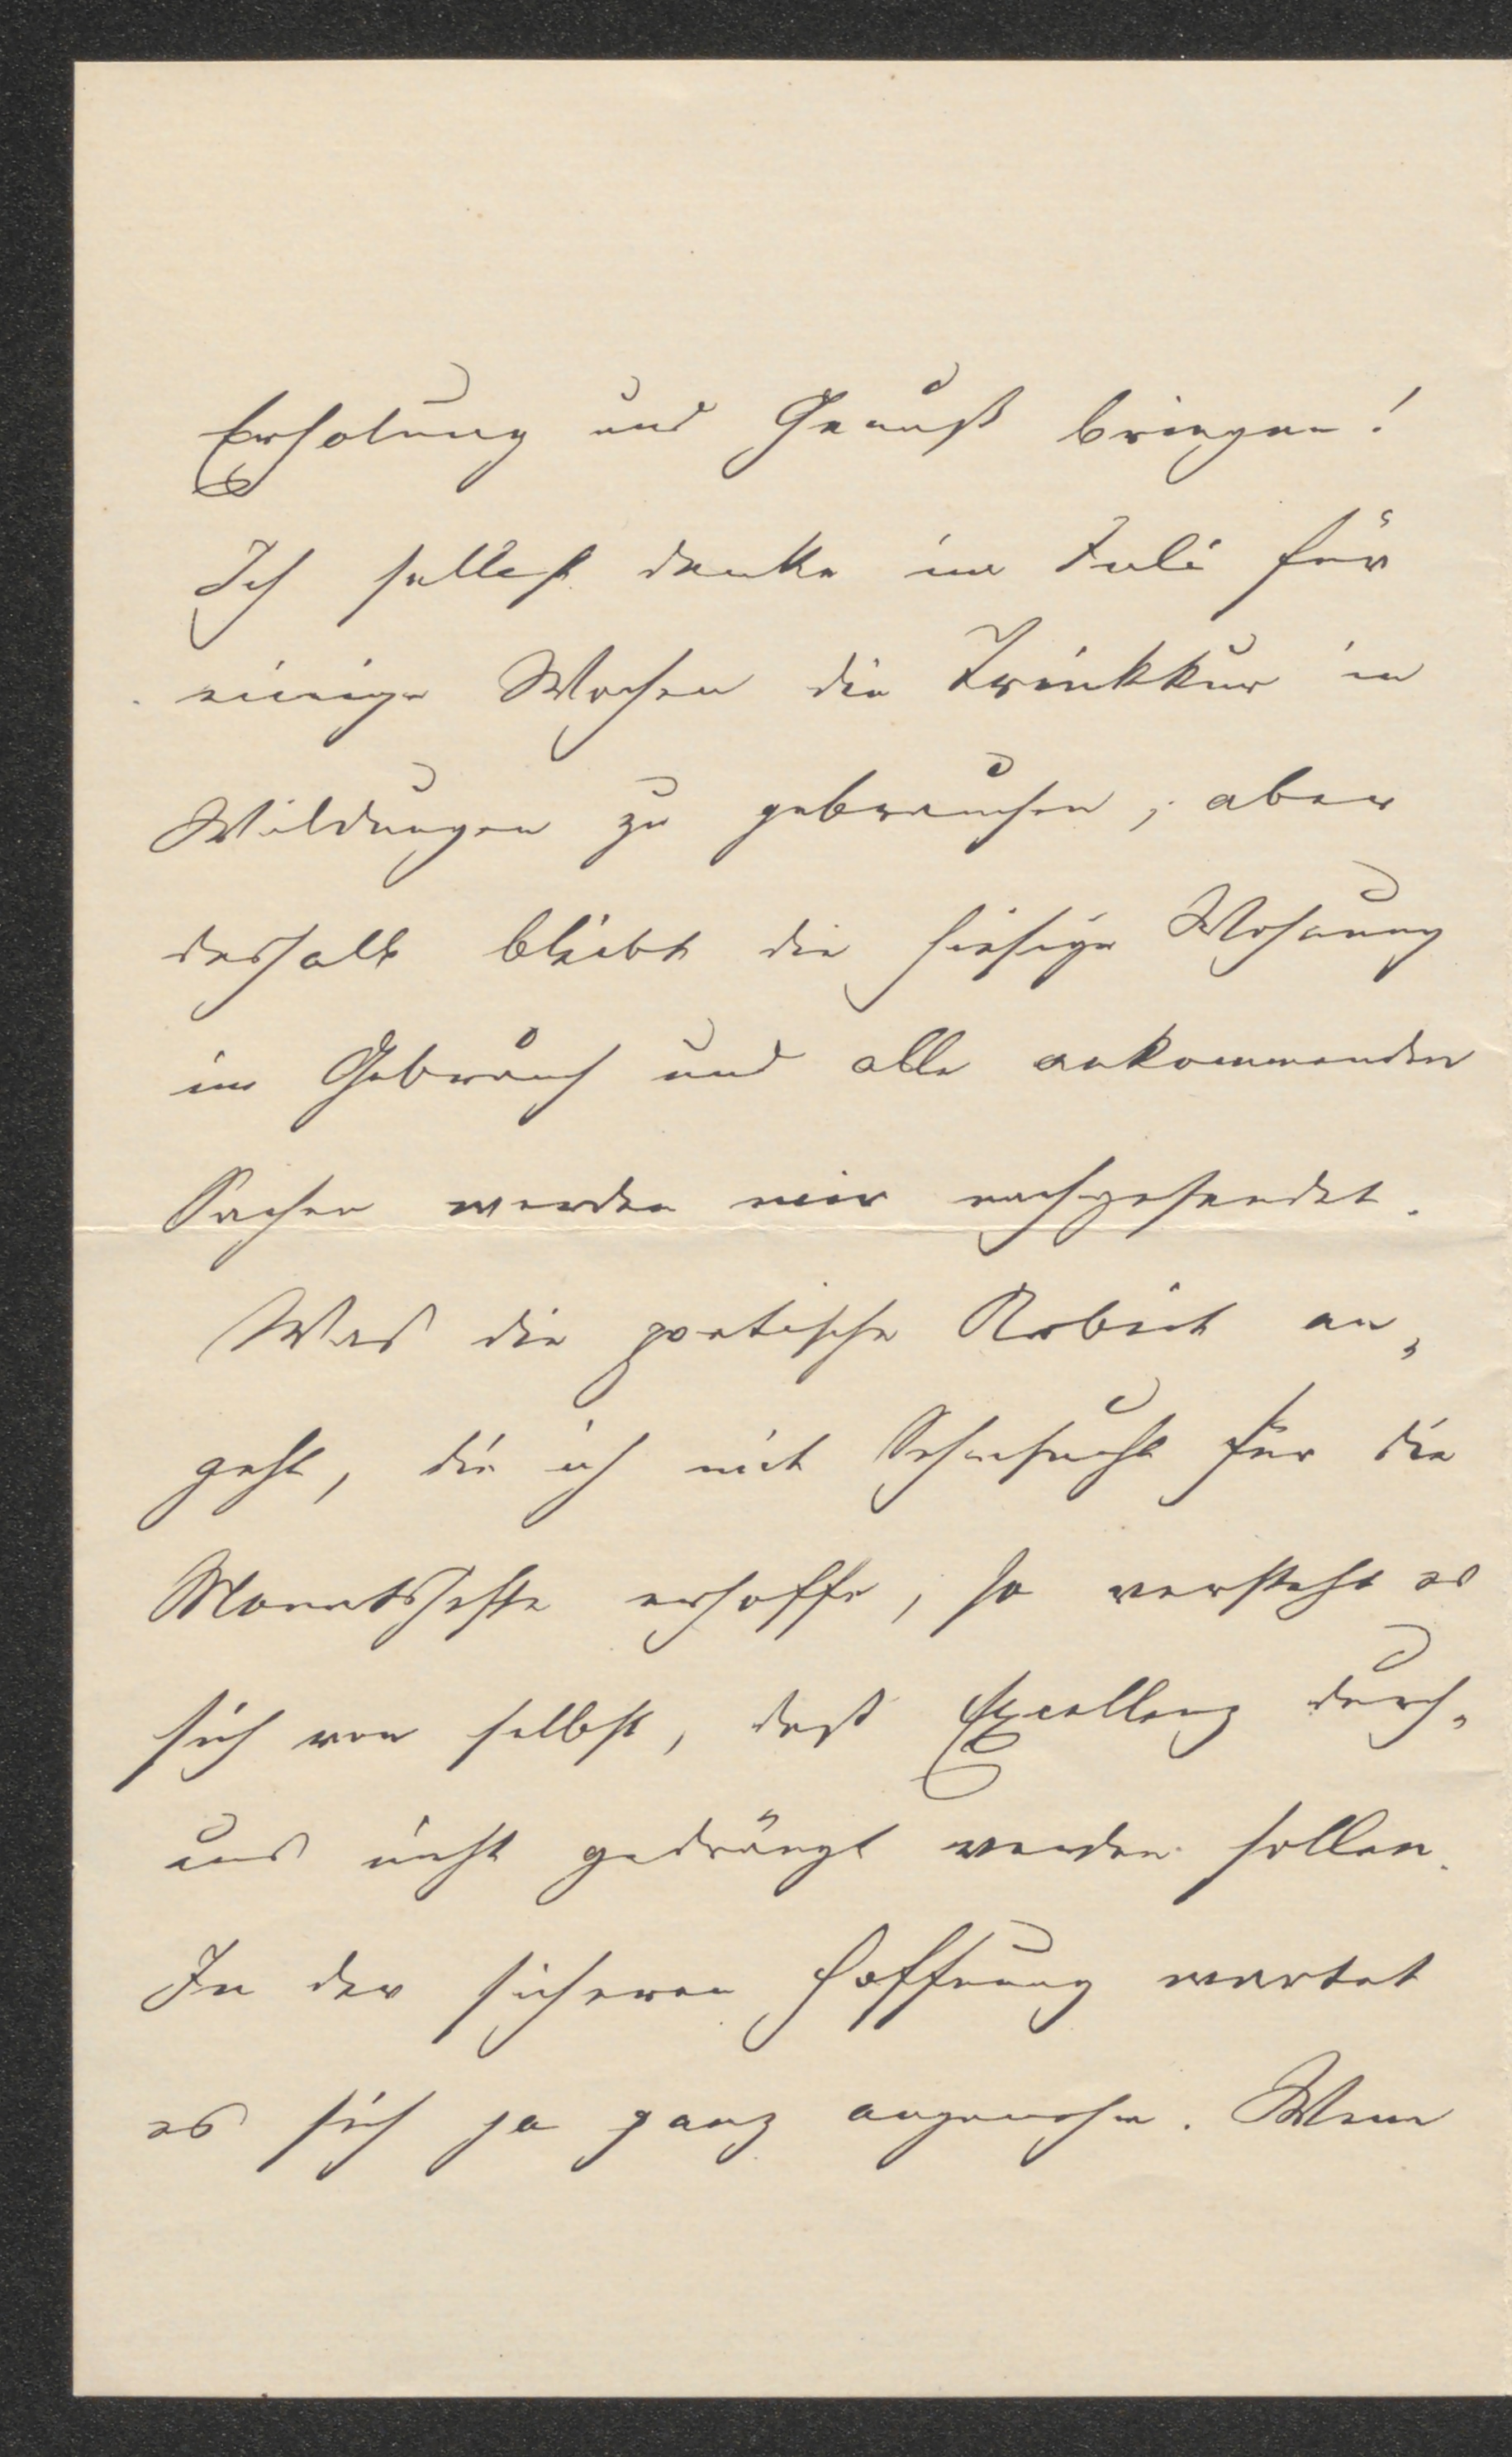 Erholung und Genuß bringen!
Ich selbst denke im Juli für
einige Wochen die Trinkkur in
Wildungen zu gebrauchen, aber
deshalb bleibt die hiesige Wohnung
im Gebrauch und alle ankommenden
Sachen werden mir nachgesendet.
Was die poetische Arbeit an-
geht, die ich mit Sehnsucht für die
Monatshefte erhoffe, so versteht es
sich von selbst, daß Excellenz durch-
aus nicht gedrängt werden sollen.
In der sicheren Hoffnung wartet
es sich ja ganz angenehm. Wenn